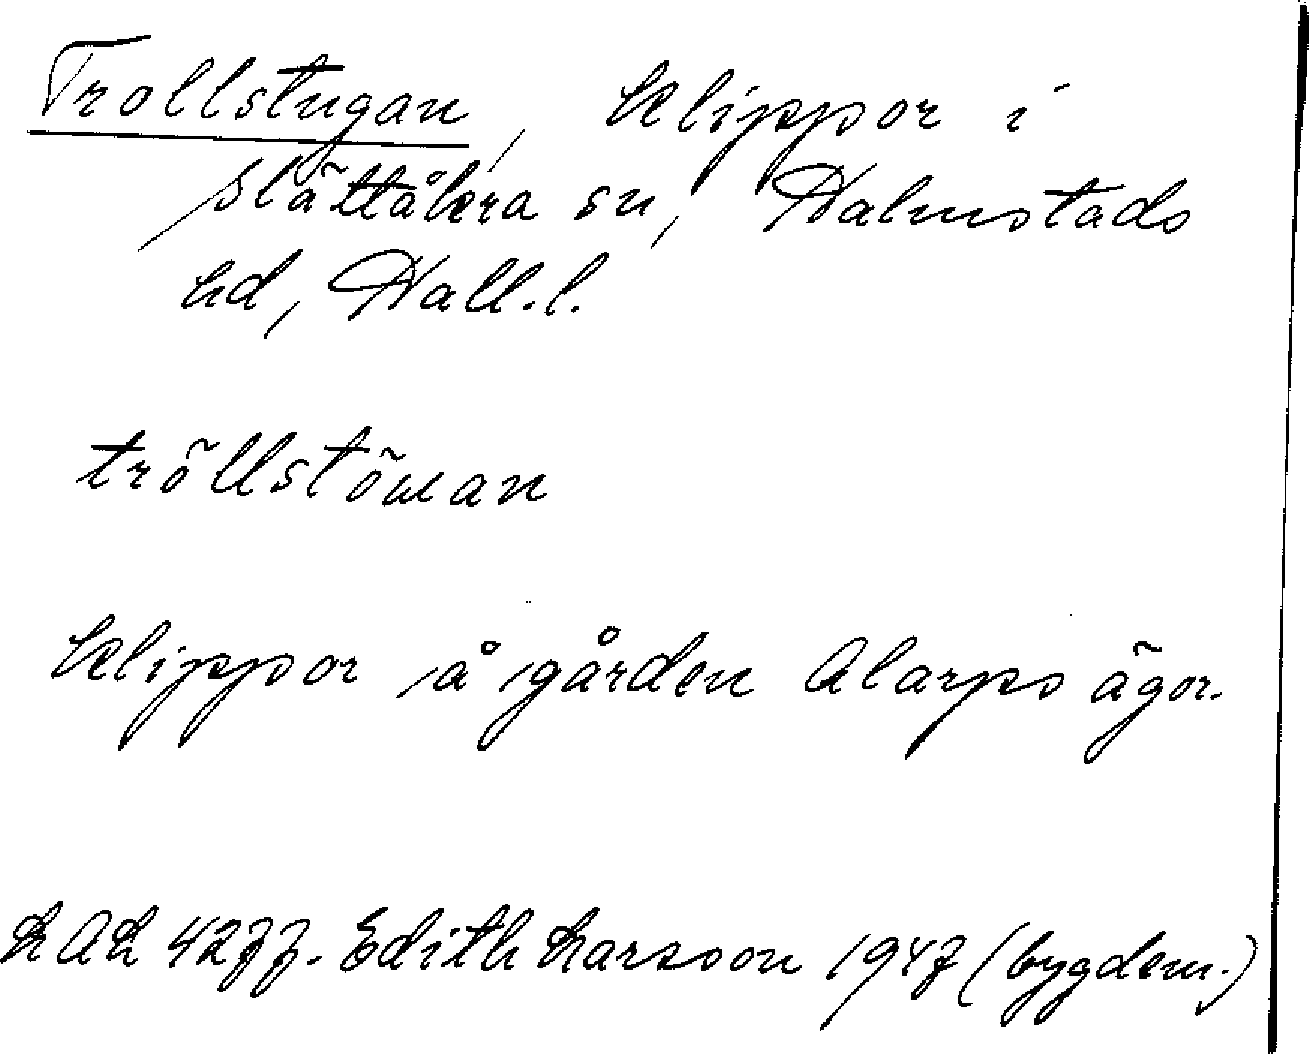 Trollstugan, klippor i
Slättåkra sn, Halmstads
hd, Hall.l.
tröllstöwan
klippor å gården Alarps ägor.
LAL 4277. Edith Larsson 1947 (bygdem.)